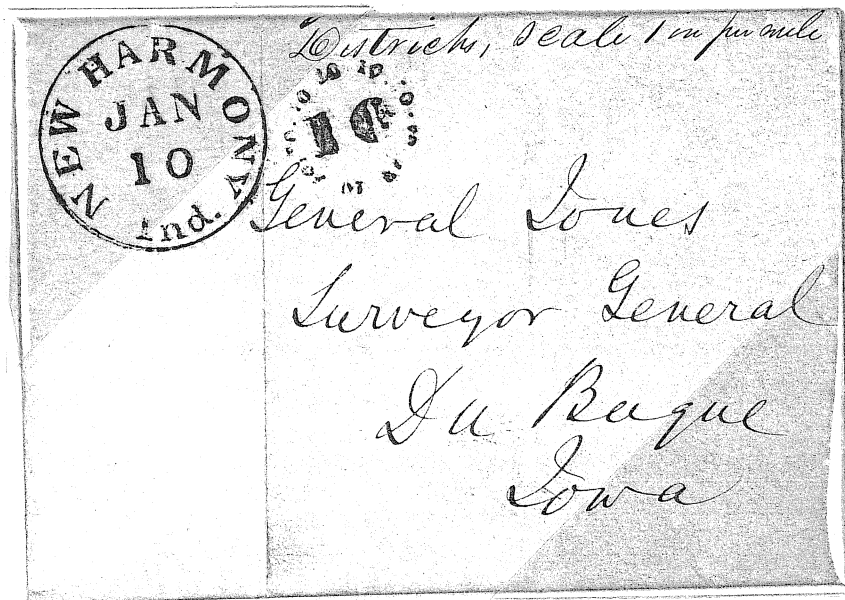 Districts, scale 1 in per mile
NEW HARMONY
JAN
10
Ind.
10
10 10 10 10 10 10 10
General Jones
Surveyor General
Du Buque
Iowa